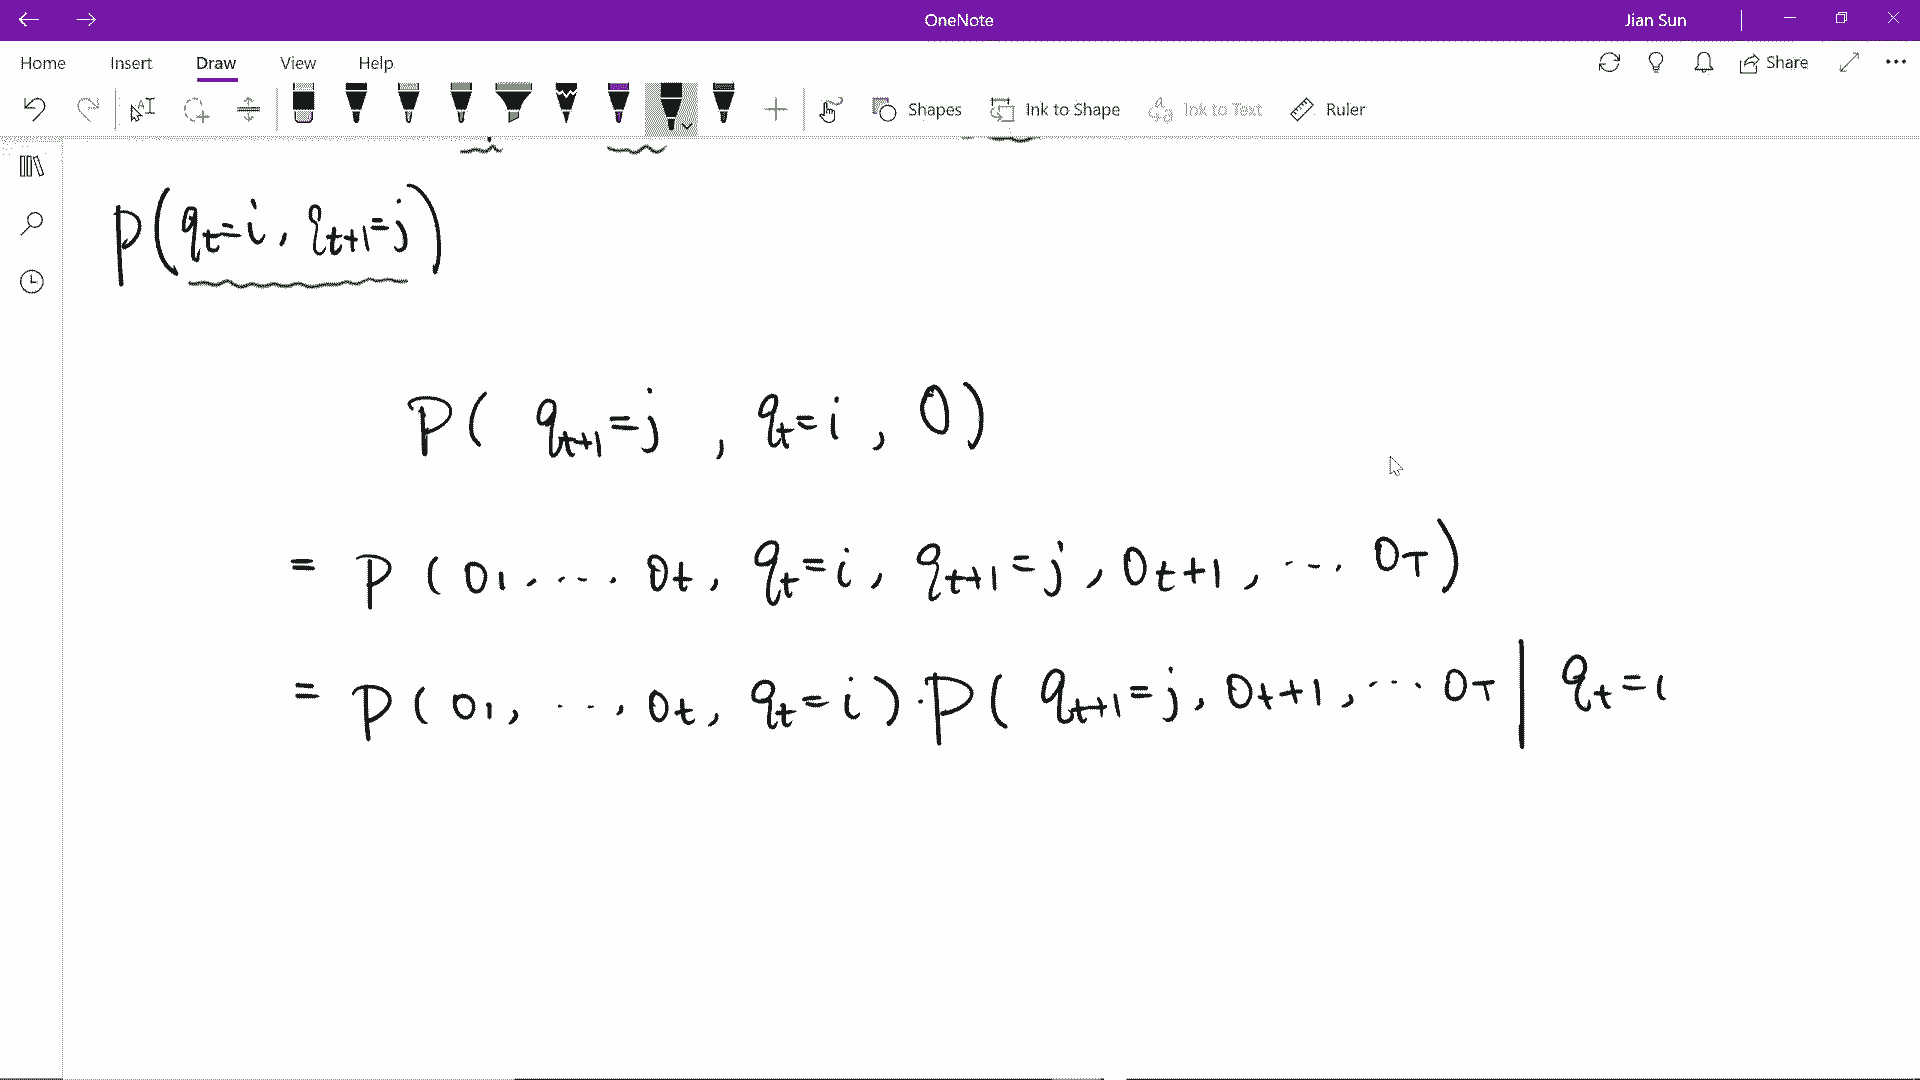 OneNote
Jian Sun
Home Insert Draw View Help
Share
Shapes Ink to Shape Ink to Text Ruler
P(q_t=i, q_{t+1}=j)
P( q_{t+1}=j , q_t=i , O)
= P (O_1, .... O_t, q_t=i, q_{t+1}=j, O_{t+1}, ... O_T)
= P( O_1, ..., O_t, q_t=i)·P( q_{t+1}=j, O_{t+1}, ... O_T | q_t=i